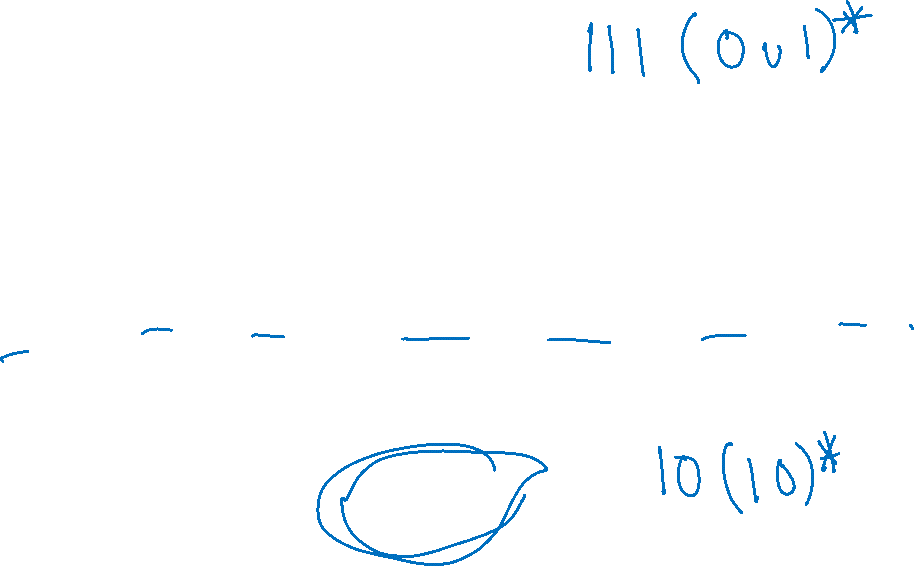 111(0∪1)*
10(10)*